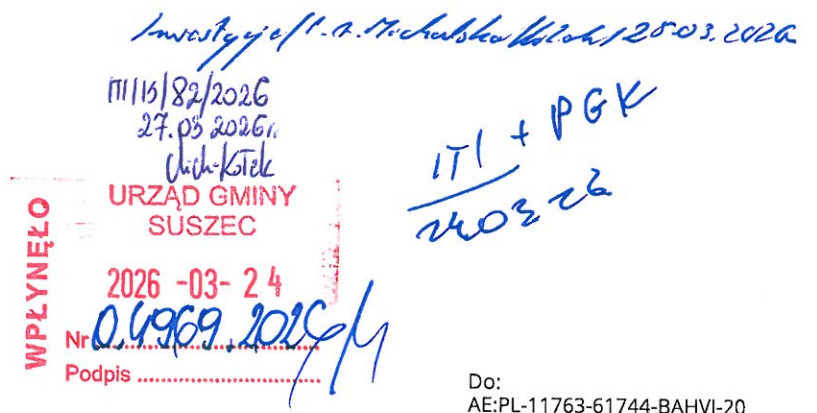 Inwestycje / P. A. Michalska-Kołek / 25.03.2026
ITI/15/82/2026
27.03.2026r.
Mich-Kołek
ITI + PGK
24.03.26
URZĄD GMINY
SUSZEC
WPŁYNĘŁO
2026 -03- 24
Nr 0.4969.2026
Podpis
Do:
AE:PL-11763-61744-BAHVI-20